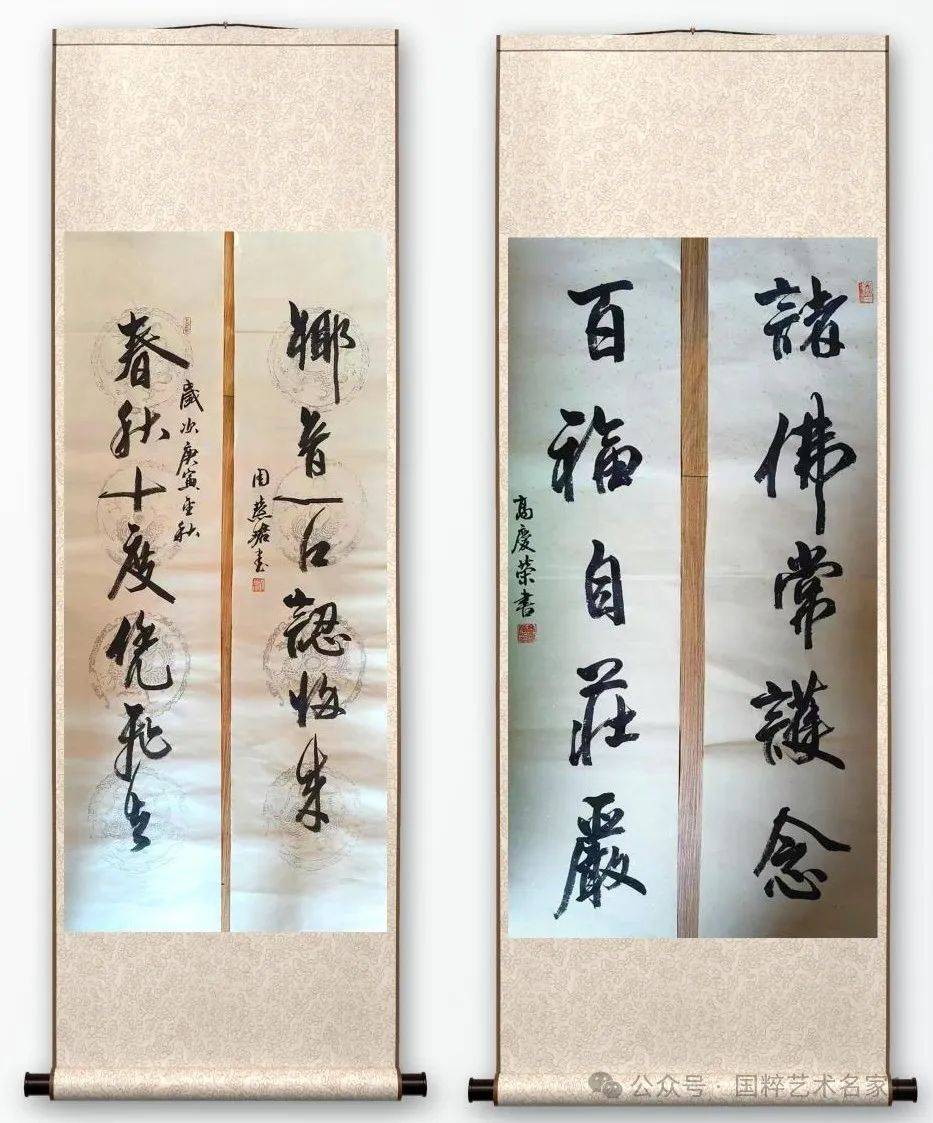 鄉音一口認歸來
春秋十度凭飛去
歲次庚寅金秋
周燕君書
諸佛常護念
百福自莊嚴
高慶榮书
公众号 · 国粹艺术名家